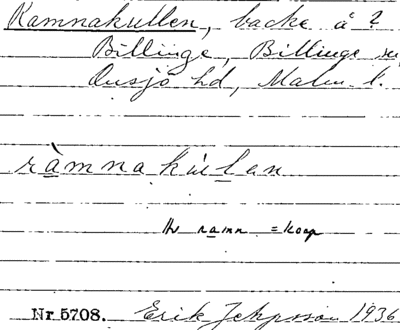 Ramnakullen, backe å ?
Billinge, Billinge
Onsjö hd, Malm. l.
ràmnakùlan
Av ramn = korp
Nr. 5708. Erik Jeppsson 1936